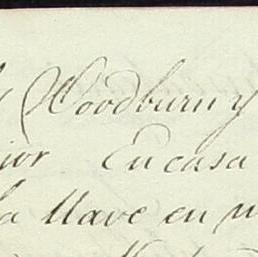 Woodburn y
ior En casa
la llave en